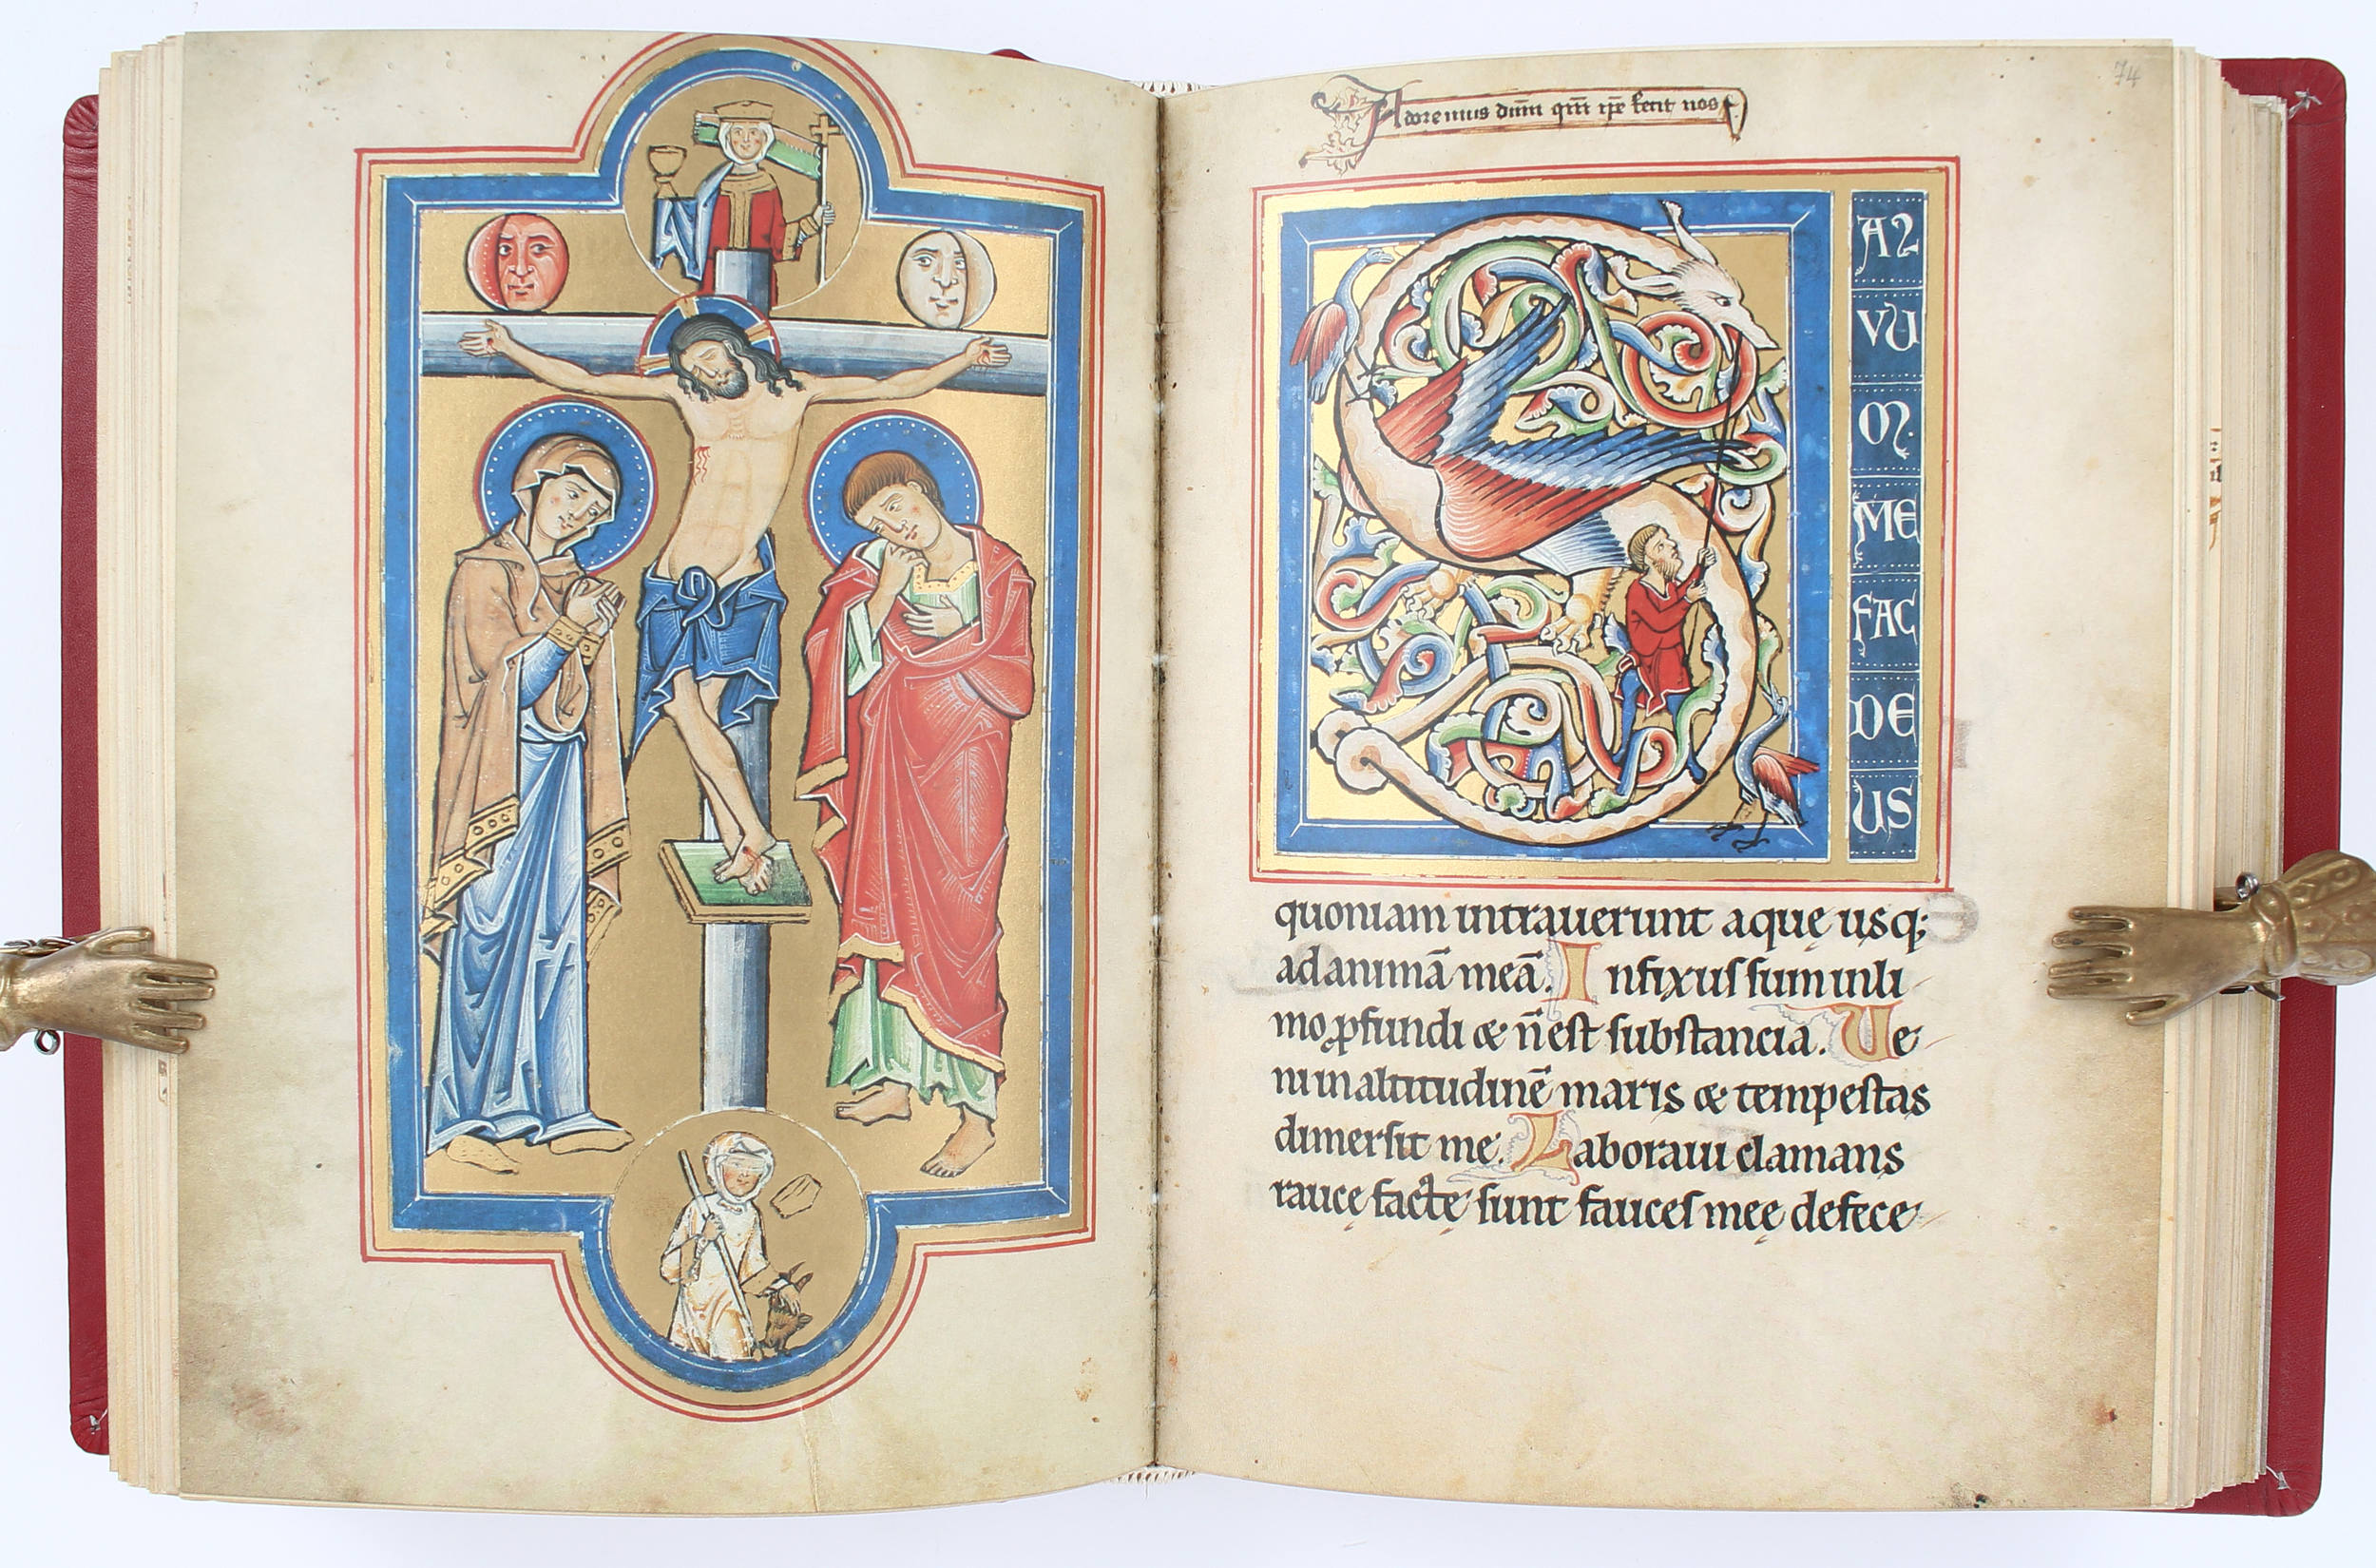 74
Adoremus dñm qm̃ ip̃e fecit nos
S
AL
VU
M
ME
FAC
DE
US
quoniam intrauerunt aquę usq;
ad animā meā. Infixus sum in li
mo ꝓfundi & ñ est substancia. Ue
ni in altitudinē maris & tempestas
dimersit me. Laboraui clamans
rauce facte sunt fauces mee defece